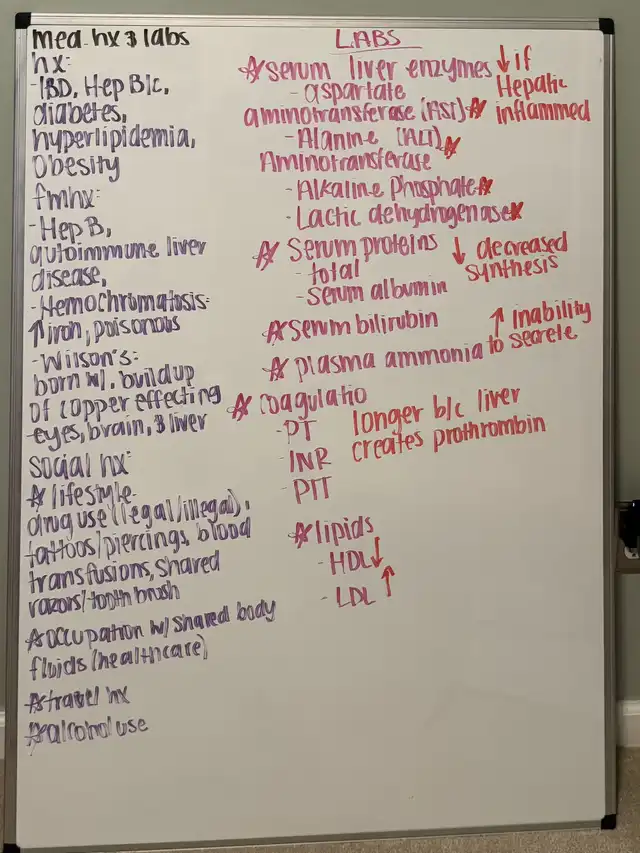 med. hx & labs
hx:
-IBD, Hep B/c,
diabetes,
hyperlipidemia,
obesity
fmhx:
-Hep B,
autoimmune liver
disease,
-Hemochromatosis:
↑iron, poisonous
-Wilson's:
born w/. buildup
of copper effecting
eyes, brain, & liver
social hx:
☆ lifestyle-
drug use (legal/illegal),
tattoos/piercings, blood
transfusions, shared
razors/tooth brush
☆occupation w/ shared body
fluids (healthcare)
☆travel hx
☆alcohol use
LABS
☆serum liver enzymes ↓ if
-aspartate Hepatic
aminotransferase (AST)☆ inflammed
-Alanine (ALT)☆
Aminotransferase
-Alkaline Phosphate☆
-Lactic dehydrogenase☆
☆ Serum proteins ↓ decreased
-total synthesis
-Serum albumin
☆Serum bilirubin ↑ Inability
☆ plasma ammonia to secrete
☆ coagulatio
-PT longer b/c liver
-INR creates prothrombin
-PTT
☆lipids
-HDL↓
-LDL↑